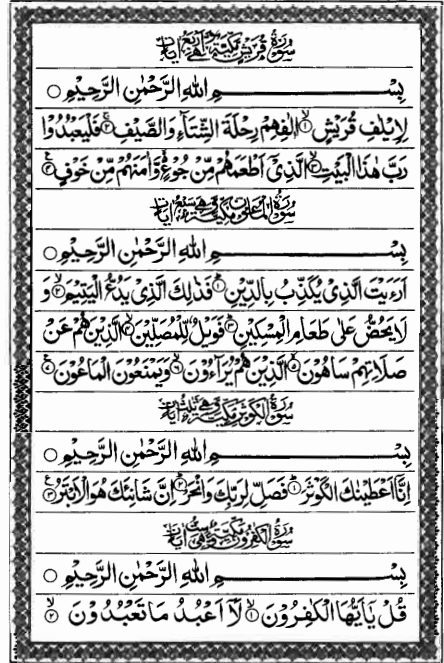 سُوْرَةُ قُرَيْشٍ مَكِّيَّةٌ وَّهِيَ اَرْبَعُ اٰيَاتٍ
بِسْمِ اللهِ الرَّحْمٰنِ الرَّحِيْمِ ○
لِاِيْلٰفِ قُرَيْشٍ ۙ﴿١﴾ اٖلٰفِهِمْ رِحْلَةَ الشِّتَآءِ وَالصَّيْفِ ۚ﴿٢﴾ فَلْيَعْبُدُوْا
رَبَّ هٰذَا الْبَيْتِ ۙ﴿٣﴾ الَّذِيْۤ اَطْعَمَهُمْ مِّنْ جُوْعٍ ۙ وَّاٰمَنَهُمْ مِّنْ خَوْفٍ ﴿٤﴾
سُوْرَةُ الْمَاعُوْنِ مَكِّيَّةٌ وَّهِيَ سَبْعُ اٰيَاتٍ
بِسْمِ اللهِ الرَّحْمٰنِ الرَّحِيْمِ ○
اَرَءَيْتَ الَّذِيْ يُكَذِّبُ بِالدِّيْنِ ﴿١﴾ فَذٰلِكَ الَّذِيْ يَدُعُّ الْيَتِيْمَ ۙ﴿٢﴾ وَ
لَا يَحُضُّ عَلٰى طَعَامِ الْمِسْكِيْنِ ﴿٣﴾ فَوَيْلٌ لِّلْمُصَلِّيْنَ ۙ﴿٤﴾ الَّذِيْنَ هُمْ عَنْ
صَلَاتِهِمْ سَاهُوْنَ ۙ﴿٥﴾ الَّذِيْنَ هُمْ يُرَآءُوْنَ ۙ﴿٦﴾ وَيَمْنَعُوْنَ الْمَاعُوْنَ ﴿٧﴾
سُوْرَةُ الْكَوْثَرِ مَكِّيَّةٌ وَّهِيَ ثَلٰثُ اٰيَاتٍ
بِسْمِ اللهِ الرَّحْمٰنِ الرَّحِيْمِ ○
اِنَّاۤ اَعْطَيْنٰكَ الْكَوْثَرَ ﴿١﴾ فَصَلِّ لِرَبِّكَ وَانْحَرْ ﴿٢﴾ اِنَّ شَانِئَكَ هُوَ الْاَبْتَرُ ﴿٣﴾
سُوْرَةُ الْكٰفِرُوْنَ مَكِّيَّةٌ وَّهِيَ سِتُّ اٰيَاتٍ
بِسْمِ اللهِ الرَّحْمٰنِ الرَّحِيْمِ ○
قُلْ يٰۤاَيُّهَا الْكٰفِرُوْنَ ۙ﴿١﴾ لَاۤ اَعْبُدُ مَا تَعْبُدُوْنَ ۙ﴿٢﴾